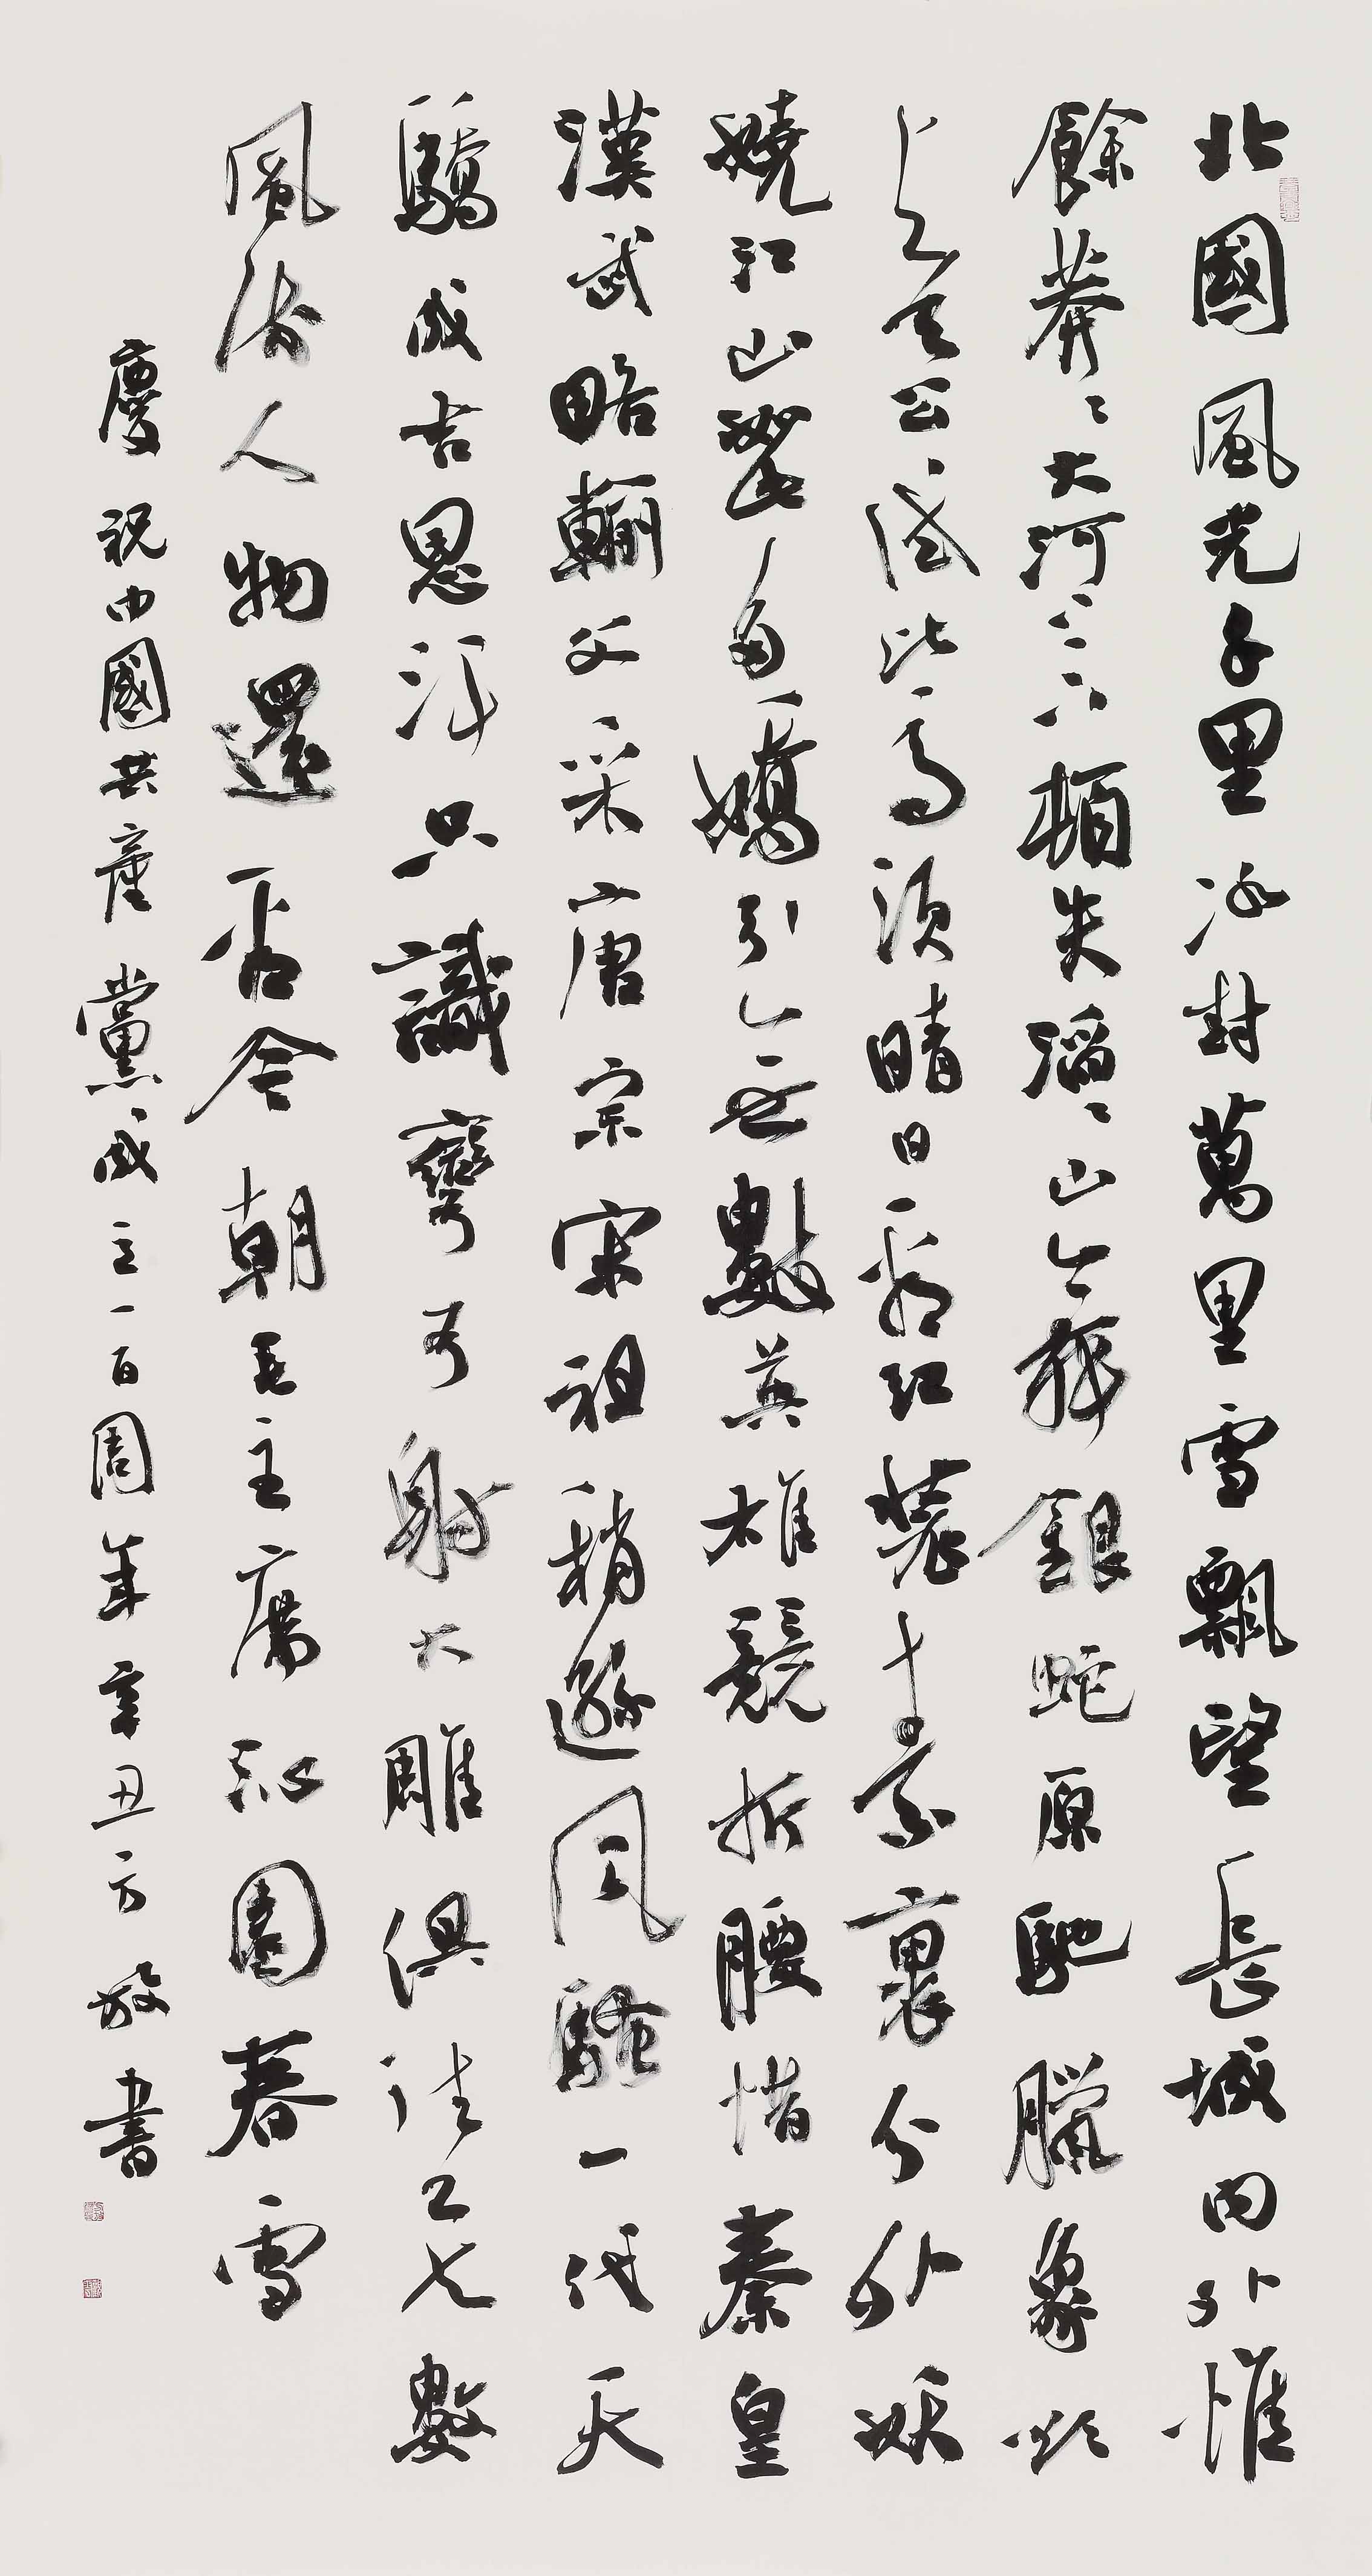 北國風光千里冰封萬里雪飄望長城內外惟
餘莽〻大河上下頓失滔〻山舞銀蛇原馳臘象欲
與天公試比高須晴日看紅裝素裹分外妖
嬈江山如此多嬌引無數英雄競折腰惜秦皇
漢武略輸文采唐宗宋祖稍遜風騷一代天
驕成吉思汗只識彎弓射大雕俱往矣數
風流人物還看今朝毛主席沁園春雪
慶祝中國共產黨成立一百周年辛丑方書